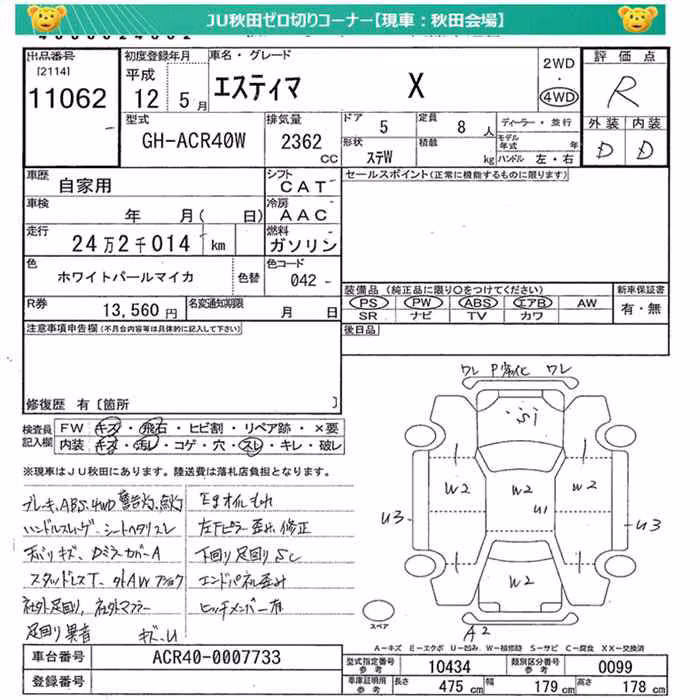 JU秋田ゼロ切りコーナー【現車：秋田会場】
出品番号 初度登録年月 車名・グレード 2WD 評価点
[2114] 平成 エスティマ X ・ R
11062 12 5月 4WD
型式 排気量 ドア 定員 ディーラー・並行 外装 内装
GH-ACR40W 2362 cc 5 8人 モデル年式 年 D D
形状 ステW 積載 kg ハンドル 左・右
車歴 自家用 シフト CAT セールスポイント(正常に機能するものに限ります)
車検 年 月( 日) 冷房 AAC
走行 24万2千014 km 燃料 ガソリン
色 ホワイトパールマイカ 色替 色コード 042-
装備品 (純正品に限り○をつけてください) 新車保証書
R券 13,560円 名変通知期限 月 日 PS PW ABS エアB AW 有・無
SR ナビ TV カワ
注意事項申告欄(不具合内容等は具体的に記入して下さい) 後日品
修復歴 有 [箇所 ]
検査員記入欄 FW キズ・飛石・ヒビ割・リペア跡・×要
内装 キズ・汚レ・コゲ・穴・スレ・キレ・破レ
※現車はJU秋田にあります。陸送費は落札店負担となります。
ブレーキ、ABS、4WD 警告灯、点灯
ハンドルスレ・ゲ、シートヘタリスレ
天バリキズ、DミラーカバーA
スタッドレスT、
社外足回り、社外マフラー
足回り異音 キズ、U
Egオイルもれ
左Fピラー歪み、修正
下回り足回りSC
エンドパネル歪み
ヒッチメンバー有
ワレ P劣化 ワレ
Si
W2 W2 W2
U1
U3 U3
W2
A2
スペア
A-キズ E-エクボ U-凹み W-補修跡 S-サビ C-腐食 XX-交換済
車台番号 ACR40-0007733 型式指定番号 参考 10434 類別区分番号 参考 0099
登録番号 車庫証明用 参考 長さ 475 cm 幅 179 cm 高さ 178 cm